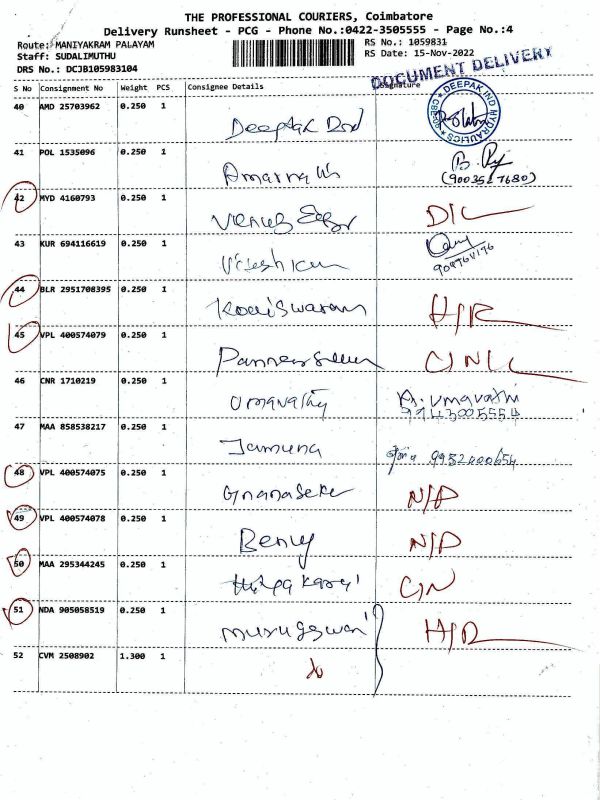 THE PROFESSIONAL COURIERS, Coimbatore
Delivery Runsheet - PCG - Phone No.:0422-3505555 - Page No.:4
Route: MANIYAKRAM PALAYAM
RS No.: 1059831
Staff: SUDALIMUTHU
RS Date: 15-Nov-2022
DRS No.: DCJB105983104
DOCUMENT DELIVERY
S No Consignment No Weight PCS Consignee Details Signature
40 AMD 25703962 0.250 1
DEEPAK IND HYDRAULICS
41 POL 1535096 0.250 1 Amarnath
(9003517680)
42 MYD 4160793 0.250 1 D/L
43 KUR 694116619 0.250 1
44 BLR 2951708395 0.250 1 Kodiswaram H/R
45 VPL 400574079 0.250 1
46 CNR 1710219 0.250 1 Umavathy A. Umavathi
9943005554
47 MAA 858538217 0.250 1 Jamuna
48 VPL 400574075 0.250 1 Gnanaseker N/P
49 VPL 400574078 0.250 1 Benny N/P
50 MAA 295344245 0.250 1 C/N
51 NDA 905058519 0.250 1 Murugeswari H/R
52 CVM 2508902 1.300 1